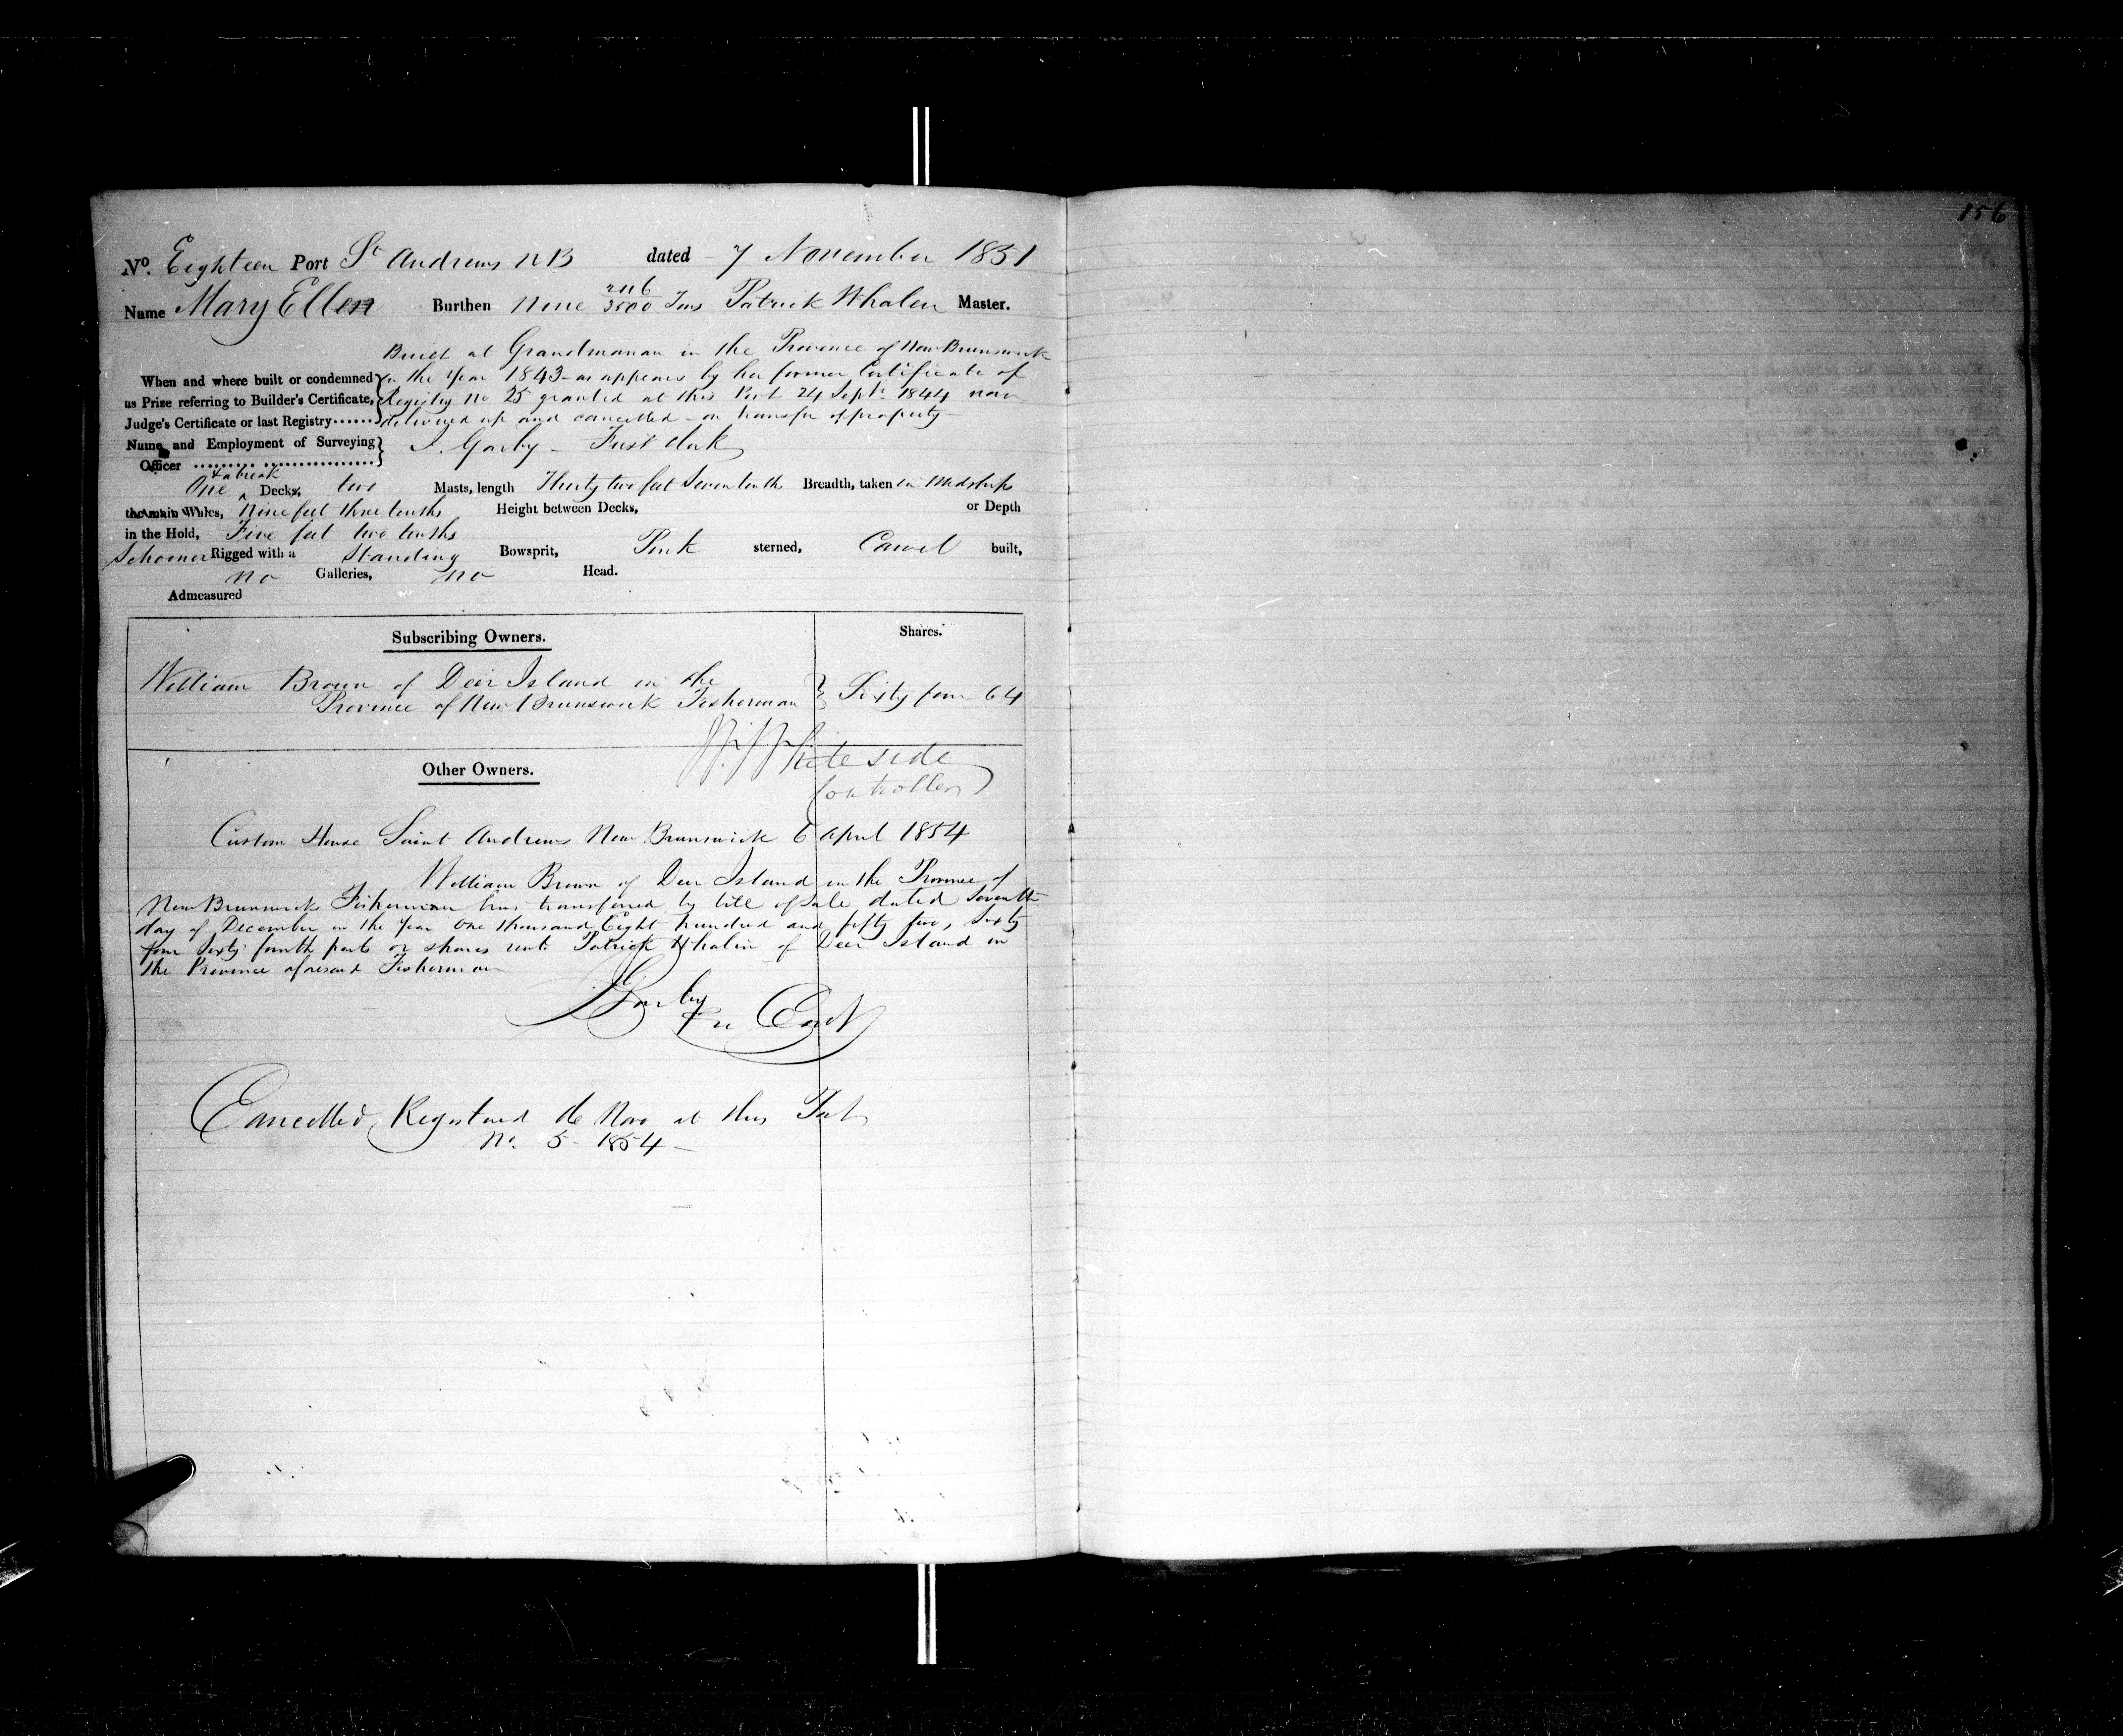 156
No. Eighteen Port St Andrews NB dated 7 November 1851
Name Mary Ellen Burthen Nine 2116/3500 Tons Patrick Whalen Master.
Built at Grandmanan in the Province of New Brunswick
When and where built or condemned in the Year 1843 - as appears by her former Certificate of
as Prize referring to Builder's Certificate, Registry No 25 granted at this Port 24 Sept. 1844 now
Judge's Certificate or last Registry...... delivered up and cancelled - on transfer of property -
Name and Employment of Surveying
Officer
Garby - First Clerk
& a break
One ^ Decks, two Masts, length Thirty two feet Seven tenths Breadth, taken in Midships
the main Wales, Nine feet three tenths Height between Decks, or Depth
in the Hold, Five feet two tenths
Schooner Rigged with a Standing Bowsprit, Pink sterned, Carvel built,
no Galleries, no Head.
Admeasured
Subscribing Owners. Shares.
William Brown of Deer Island in the
Province of New Brunswick Fisherman } Sixty four 64
Whiteside
Controller
Other Owners.
Custom House Saint Andrews New Brunswick 6 April 1854
William Brown of Deer Island in the Province of
New Brunswick Fisherman has transferred by bill of Sale dated Seventh
day of December in the Year One thousand Eight hundred and fifty two, Sixty
four Sixty fourth parts or shares unto Patrick Whalin of Deer Island in
the Province aforesaid Fisherman
Garby
Cancelled, Registered de Novo at this Port
No. 5 - 1854 -